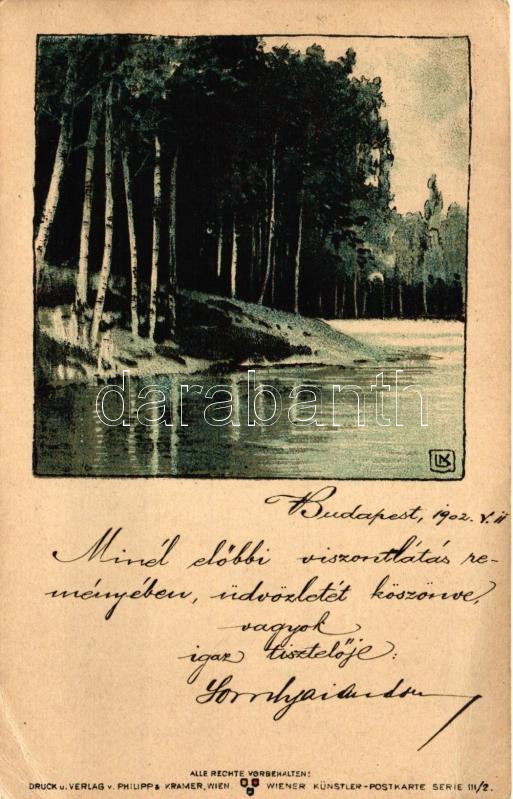 darabanth
LK
Budapest, 1902. V. 11
Minél előbbi viszontlátás re-
ményében, üdvözletét köszönve,
vagyok
igaz tisztelője:
ALLE RECHTE VORBEHALTEN!
DRUCK u. VERLAG v. PHILIPP & KRAMER, WIEN WIENER KÜNSTLER-POSTKARTE SERIE III/2.